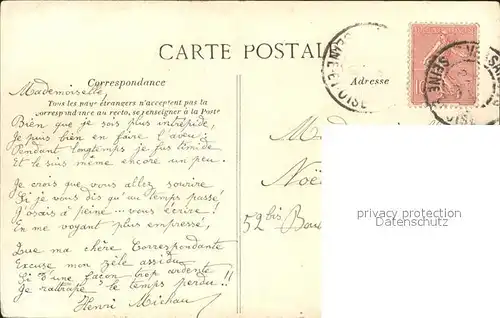 CARTE POSTALE
Correspondance
Adresse
Tous les pays étrangers n'acceptent pas la
correspondance au recto, se renseigner à la Poste
Mademoiselle,
Bien que je sois plus intrépide,
Je puis bien en faire l'aveu:
Pendant longtemps je fus timide
Et le suis même encore un peu.
Je crois que vous allez sourire
Si je vous dis qu'au temps passé
J'osais à peine... vous écrire!
En me voyant plus empressé,
Que ma chère Correspondante
Excuse mon zèle assidu
Si d'une façon trop ardente
Je rattrape le temps perdu!!
Henri Michau
Noë
52 bis Bou
10
SEINE-ET-OISE
SEINE
privacy protection
Datenschutz